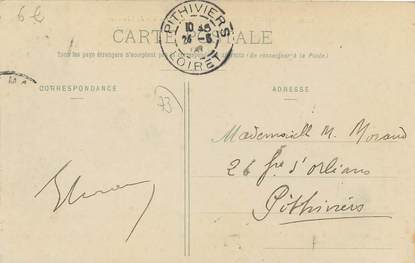 6€
CARTE POSTALE
PITHIVIERS
10 45
24 -6
LOIRET
Tous les pays étrangers n'acceptent pas (Se renseigner à la Poste)
CORRESPONDANCE
ADRESSE
Mademoiselle M. Morand
26 fg d'Orléans
Pithiviers